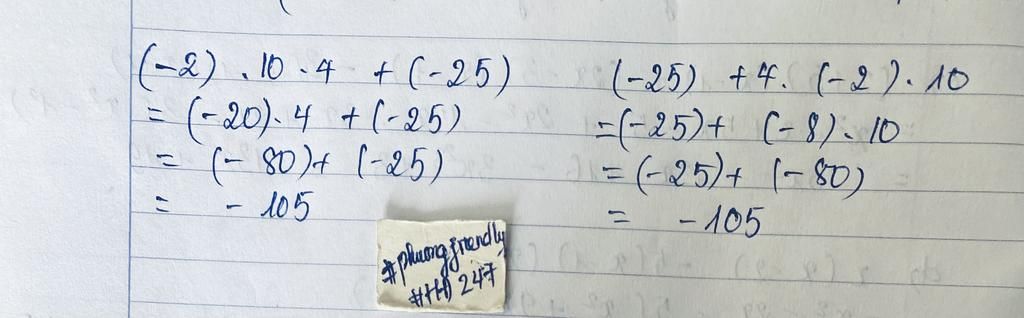 (-2) . 10 . 4 + (-25)
= (-20) . 4 + (-25)
= (-80) + (-25)
= -105
(-25) + 4 . (-2) . 10
= (-25) + (-8) . 10
= (-25) + (-80)
= -105
#phuongfriendly
247